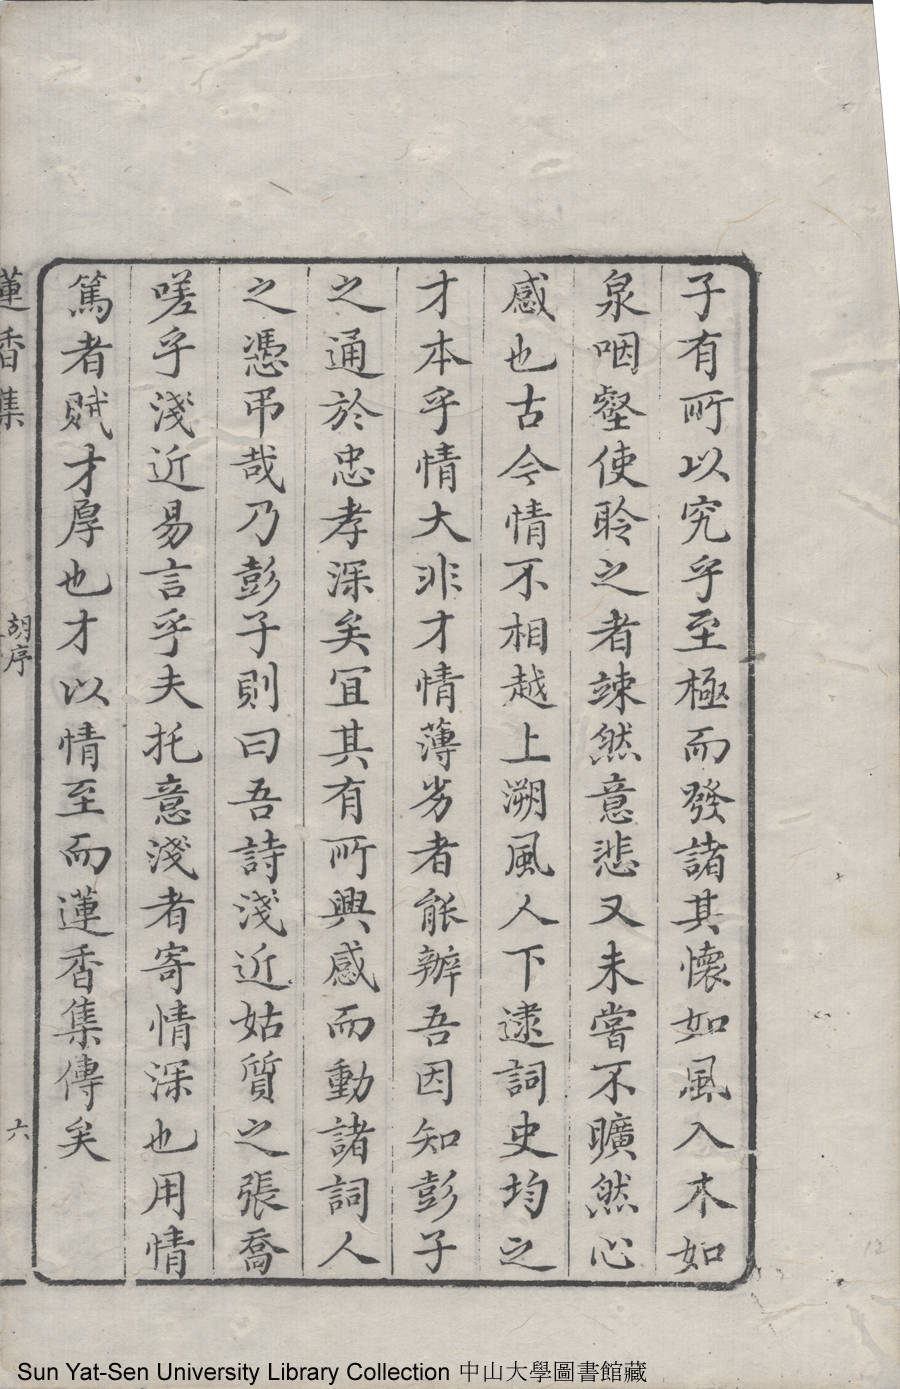 子有所以究乎至極而發諸其懷如風入木如
泉咽壑使聆之者竦然意悲又未嘗不曠然心
感也古今情不相越上溯風人下逮詞史均之
才本乎情大非才情薄劣者能辦吾因知彭子
之通於忠孝深矣冝其有所興感而動諸詞人
之憑弔哉乃彭子則曰吾詩淺近姑質之張喬
嗟乎淺近易言乎夫托意淺者寄情深也用情
篤者賦才厚也才以情至而蓮香集傳矣
蓮香集
胡序
六
12
Sun Yat-Sen University Library Collection 中山大學圖書館藏